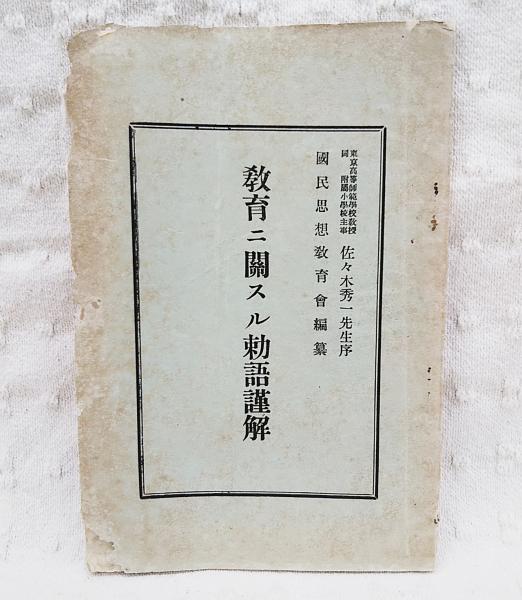 東京高等師範學校教授
同 附屬小學校主事
佐々木秀一先生序
國民思想教育會編纂
教育ニ關スル勅語謹解